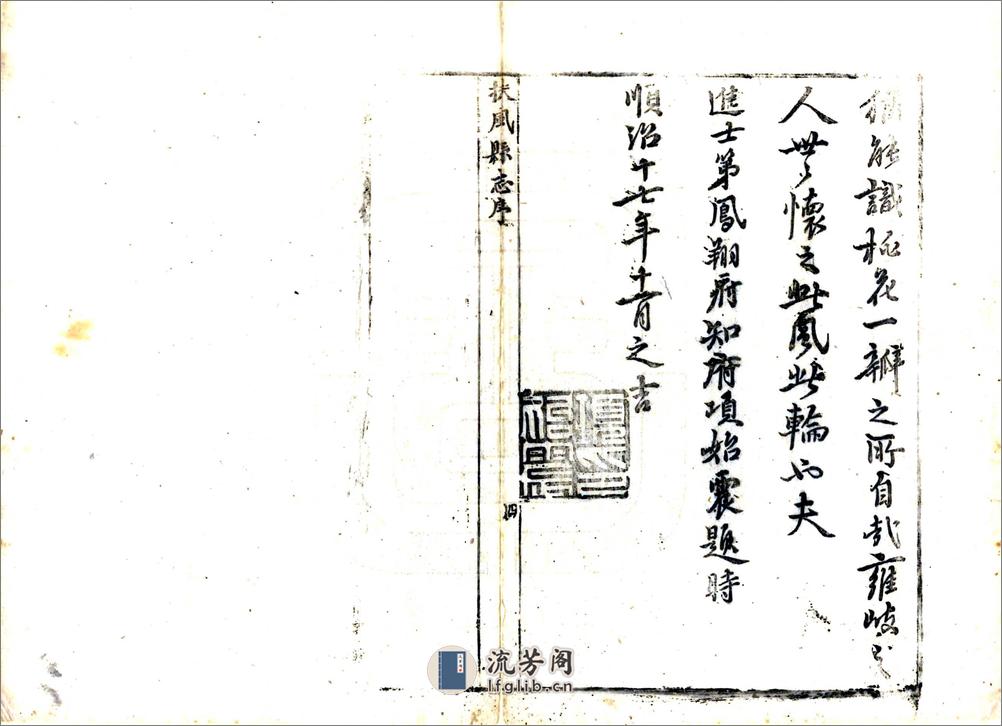 猶能識極花一瓣之所自哉雍岐之
人世世懷之此風此輪也夫
進士第鳳翔府知府項始震題時
順治十七年十一月之吉
扶風縣志序
四
流芳阁
lfglib.cn